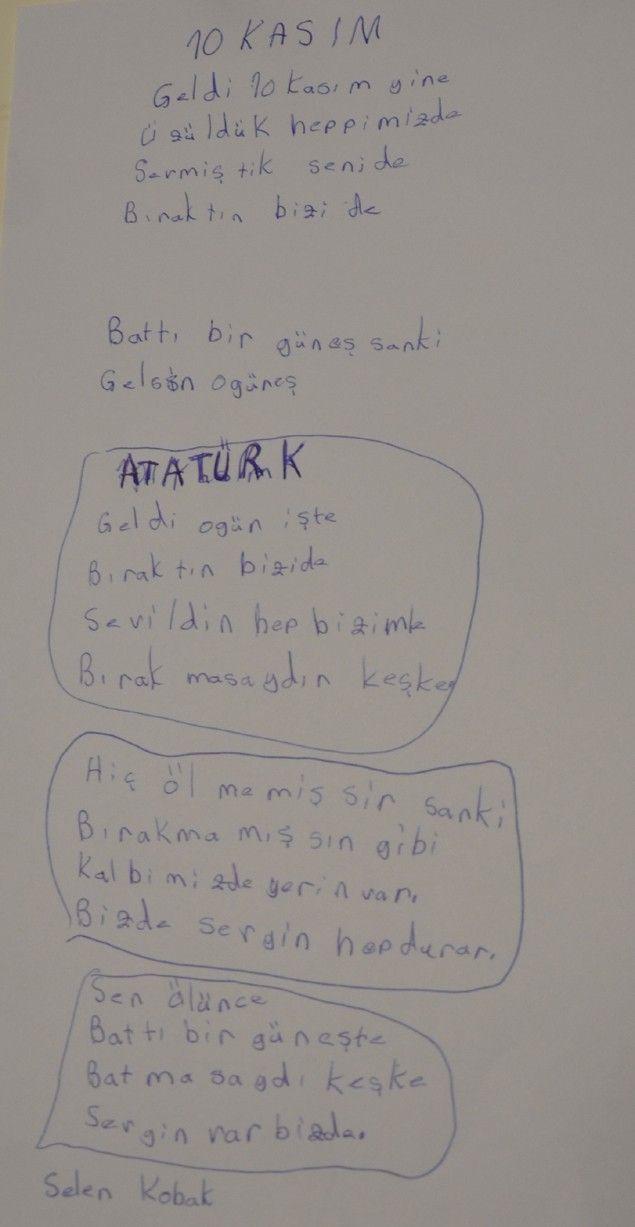 10 KASIM
Geldi 10 Kasım yine
Üzüldük heppimizde
Sermiştik senide
Bıraktın bizi de
Battı bir güneş sanki
Gelsin ogüneş
ATATÜRK
Geldi ogün işte
Bıraktın bizide
Sevildin hep bizimle
Bırakmasaydın keşke
Hiç ölmemişsir sanki
Bırakmamışsın gibi
Kalbimizde yerin var.
Bizde sergin hepdurar.
Sen ölünce
Battı bir güneşte
Batmasaydı keşke
Sergin var bizde.
Selen Kobak